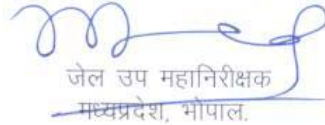 जेल उप महानिरीक्षक
मध्यप्रदेश, भोपाल.